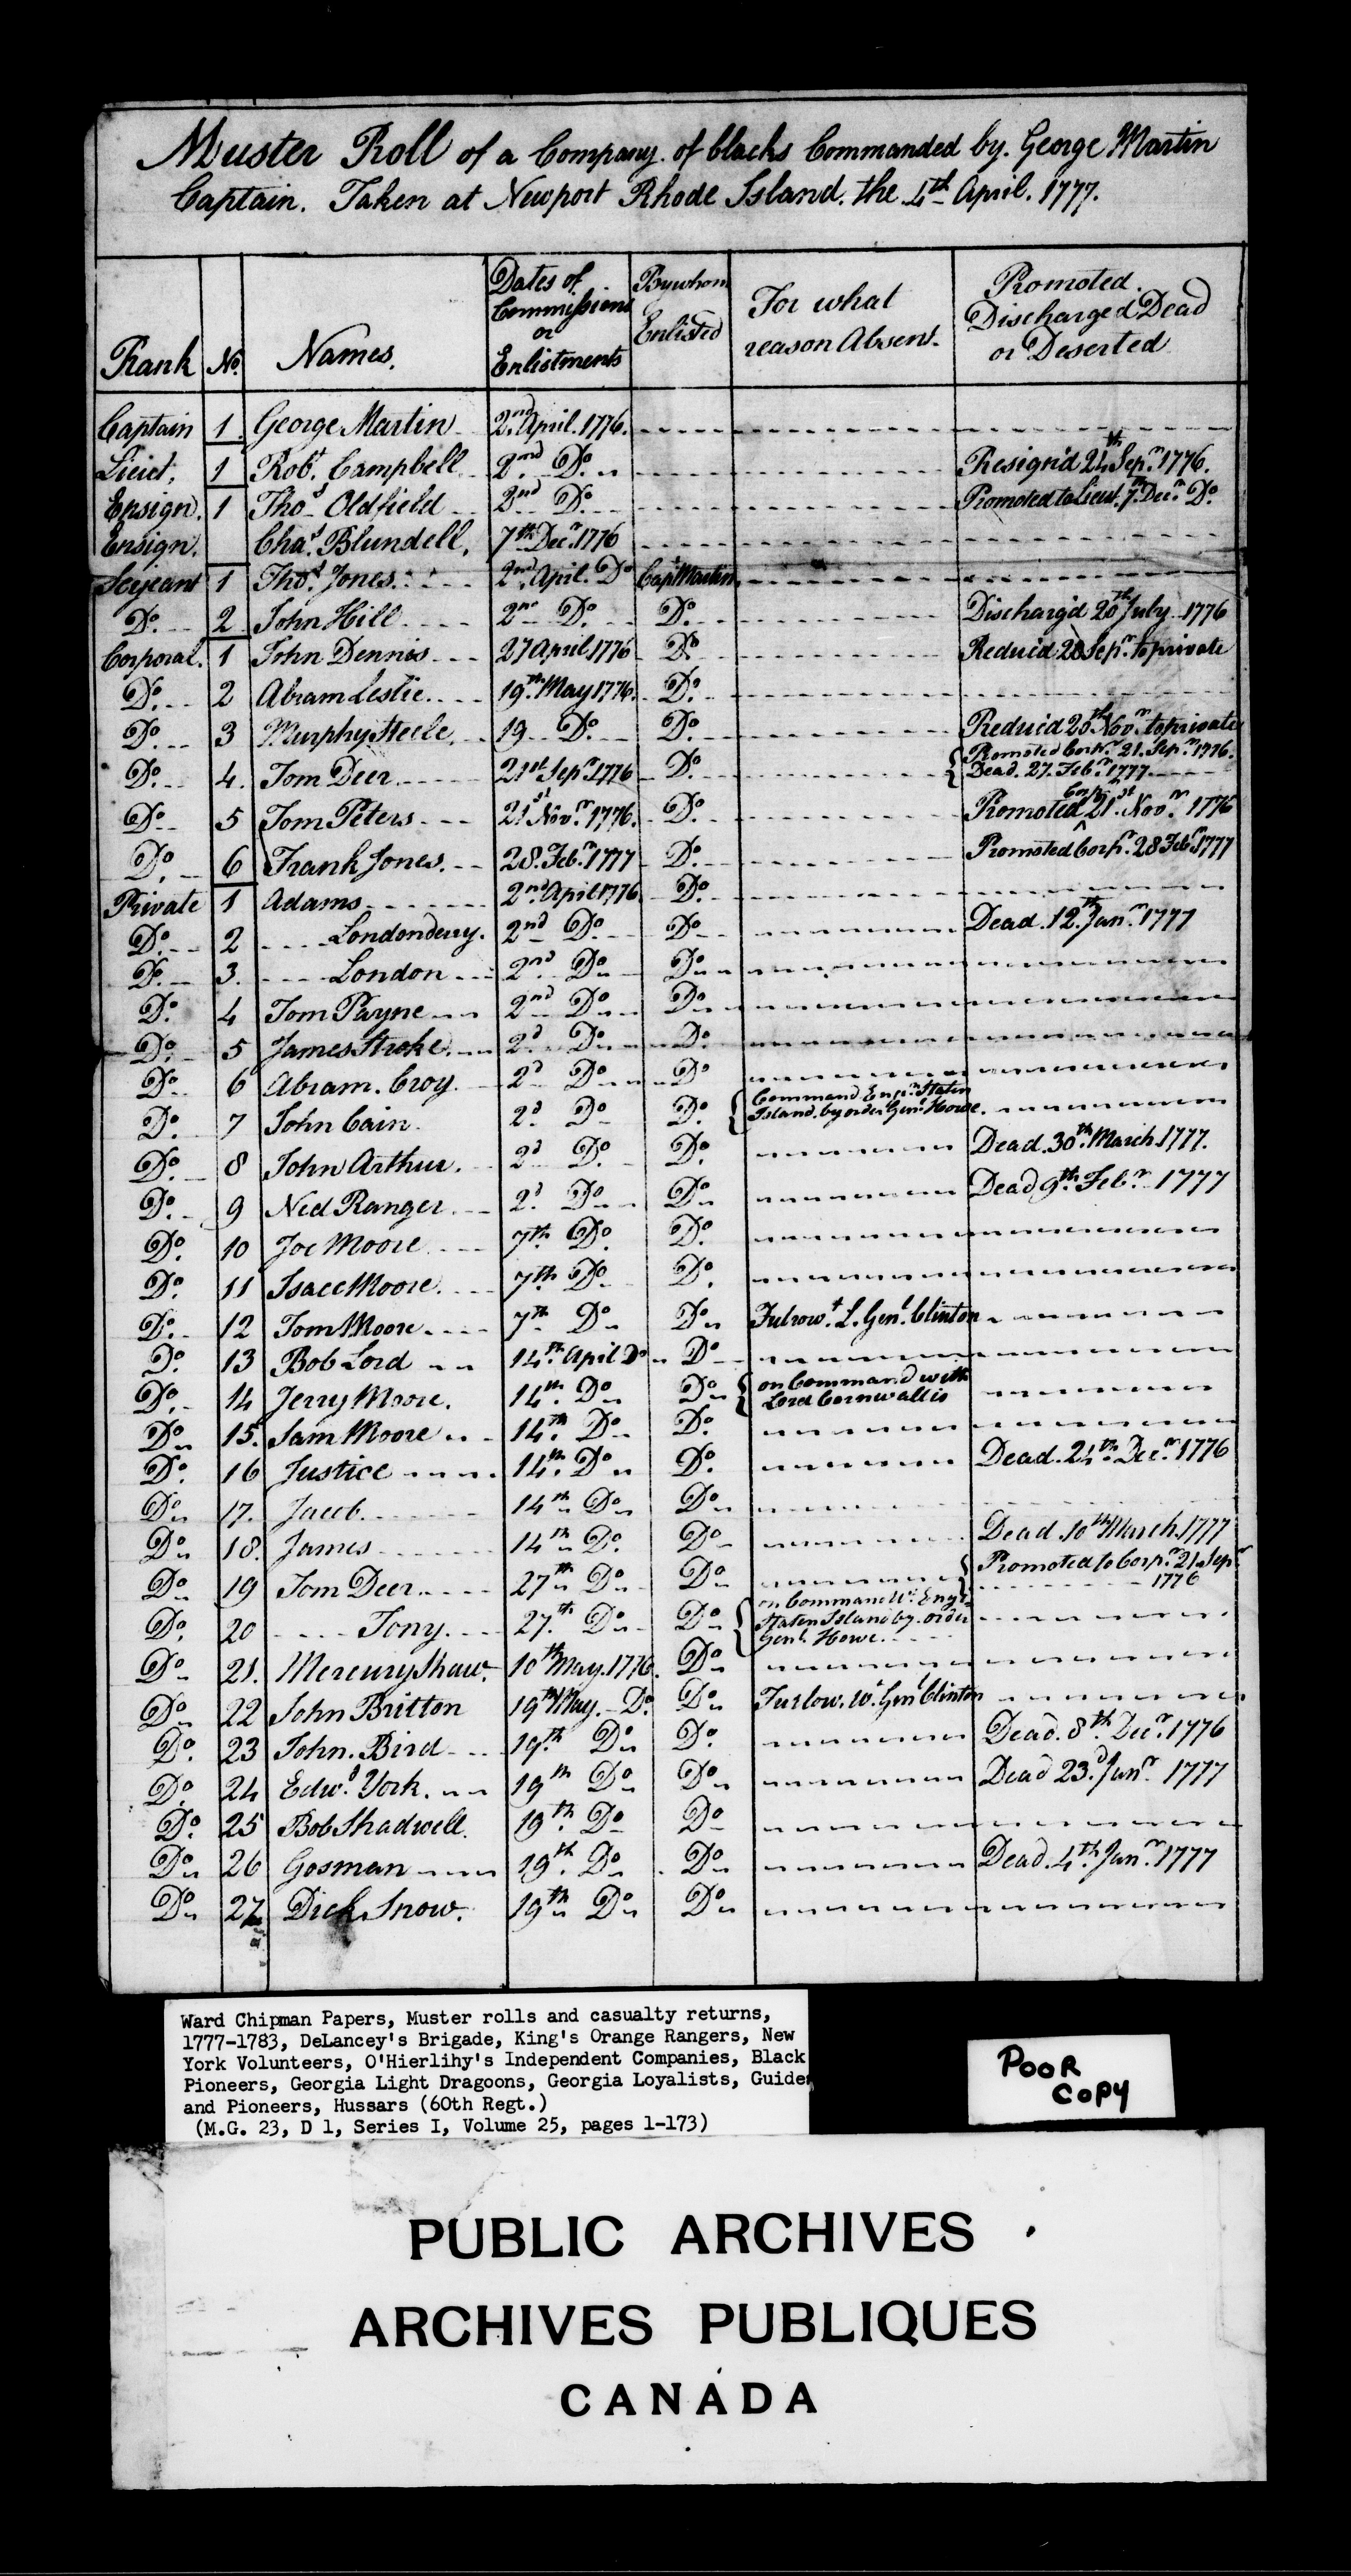 Muster Roll of a Company of blacks Commanded by George Martin
Captain. Taken at Newport Rhode Island. the 4th April. 1777.
Rank No. Names. Dates of Commissions or Enlistments By whom Enlisted For what reason Absent. Promoted. Discharged Dead or Deserted
Captain 1 George Martin 2nd April. 1776.
Lieut. 1 Robt. Campbell 2nd Do. Resign'd 24th Sepr. 1776.
Ensign. 1 Thos. Oldfield 2nd Do. Promoted to Lieut. 7th Decr. Do.
Ensign. Chas. Blundell. 7th Decr. 1776
Serjeant 1 Thos. Jones. 2nd April. Do Capt Martin
Do. 2 John Hill 2nd Do. Do. Discharg'd 20th July 1776
Corporal. 1 John Dennis 27 April 1776 Do Reduc'd 20 Sepr. to private
Do. 2 Abram Leslie. 19th May 1776. Do.
Do. 3 Murphy Steele. 19 Do. Do. Reduc'd 20th Novr. to private
Do. 4. Tom Deer 21st Sepr 1776 Do. Promoted Corpl. 21. Sepr. 1776.
Dead. 27. Febr. 1777
Do 5 Tom Peters 21st Novr. 1776. Do. Promoted Corpl. 21st Novr. 1776
Do. 6 Frank Jones. 28. Febr. 1777 Do. Promoted Corpl. 28 Febr 1777
Private 1 Adams 2nd April 1776 Do.
Do. 2 Londonderry. 2nd Do Do Dead. 12th Janr. 1777
Do. 3. London 2nd Do Do
Do. 4 Tom Payne 2nd Do Do
Do. 5 James Stroke. 2d Do Do.
Do. 6 Abram. Croy. 2d Do Do
Do. 7 John Cain. 2d Do Do. Command Engrs. Staten
Island. by order Genl. Howe.
Do. 8 John Arthur. 2d Do. Do. Dead. 30th March 1777.
Do. 9 Ned Ranger 2d Do Do Dead 9th Febr. 1777
Do. 10 Joe Moore 7th Do. Do.
Do. 11 Isacc Moore. 7th Do Do.
Do. 12 Tom Moore 7th Do Do Fulrow. L. Genl. Clinton
Do. 13 Bob Lord 14th April Do Do
Do. 14 Jerry Moore. 14th Do Do on Command with
Lord Cornwallis
Do 15. Sam Moore 14th Do Do.
Do. 16 Justice 14th Do Do. Dead. 24th Decr. 1776
Do 17. Jacob. 14th Do Do
Do 18. James 14th Do. Do Dead 10th March 1777
Do 19 Tom Deer 27th Do Do Promoted to Corpr. 21 Sepr
1776
Do. 20 Tony. 27th Do Do on Command Wt. Engrs
Staten Island by order
Genl. Howe.
Do 21. Mercury Shaw. 10th May. 1776. Do
Do 22 John Britton 19th May. Do. Do Furlow. Wt. Genl Clinton
Do. 23 John. Bird 19th Do Do. Dead. 8th Decr. 1776
Do. 24 Edwd. York. 19th Do Do Dead 23d Janr. 1777
Do. 25 Bob Shadwell. 19th Do Do
Do 26 Gosman 19th Do Do Dead. 4th Janr. 1777
Do 27 Dick Snow. 19th Do Do
Ward Chipman Papers, Muster rolls and casualty returns,
1777-1783, DeLancey's Brigade, King's Orange Rangers, New
York Volunteers, O'Hierlihy's Independent Companies, Black
Pioneers, Georgia Light Dragoons, Georgia Loyalists, Guides
and Pioneers, Hussars (60th Regt.)
(M.G. 23, D 1, Series I, Volume 25, pages 1-173)
POOR
COPY
PUBLIC ARCHIVES
ARCHIVES PUBLIQUES
CANADA